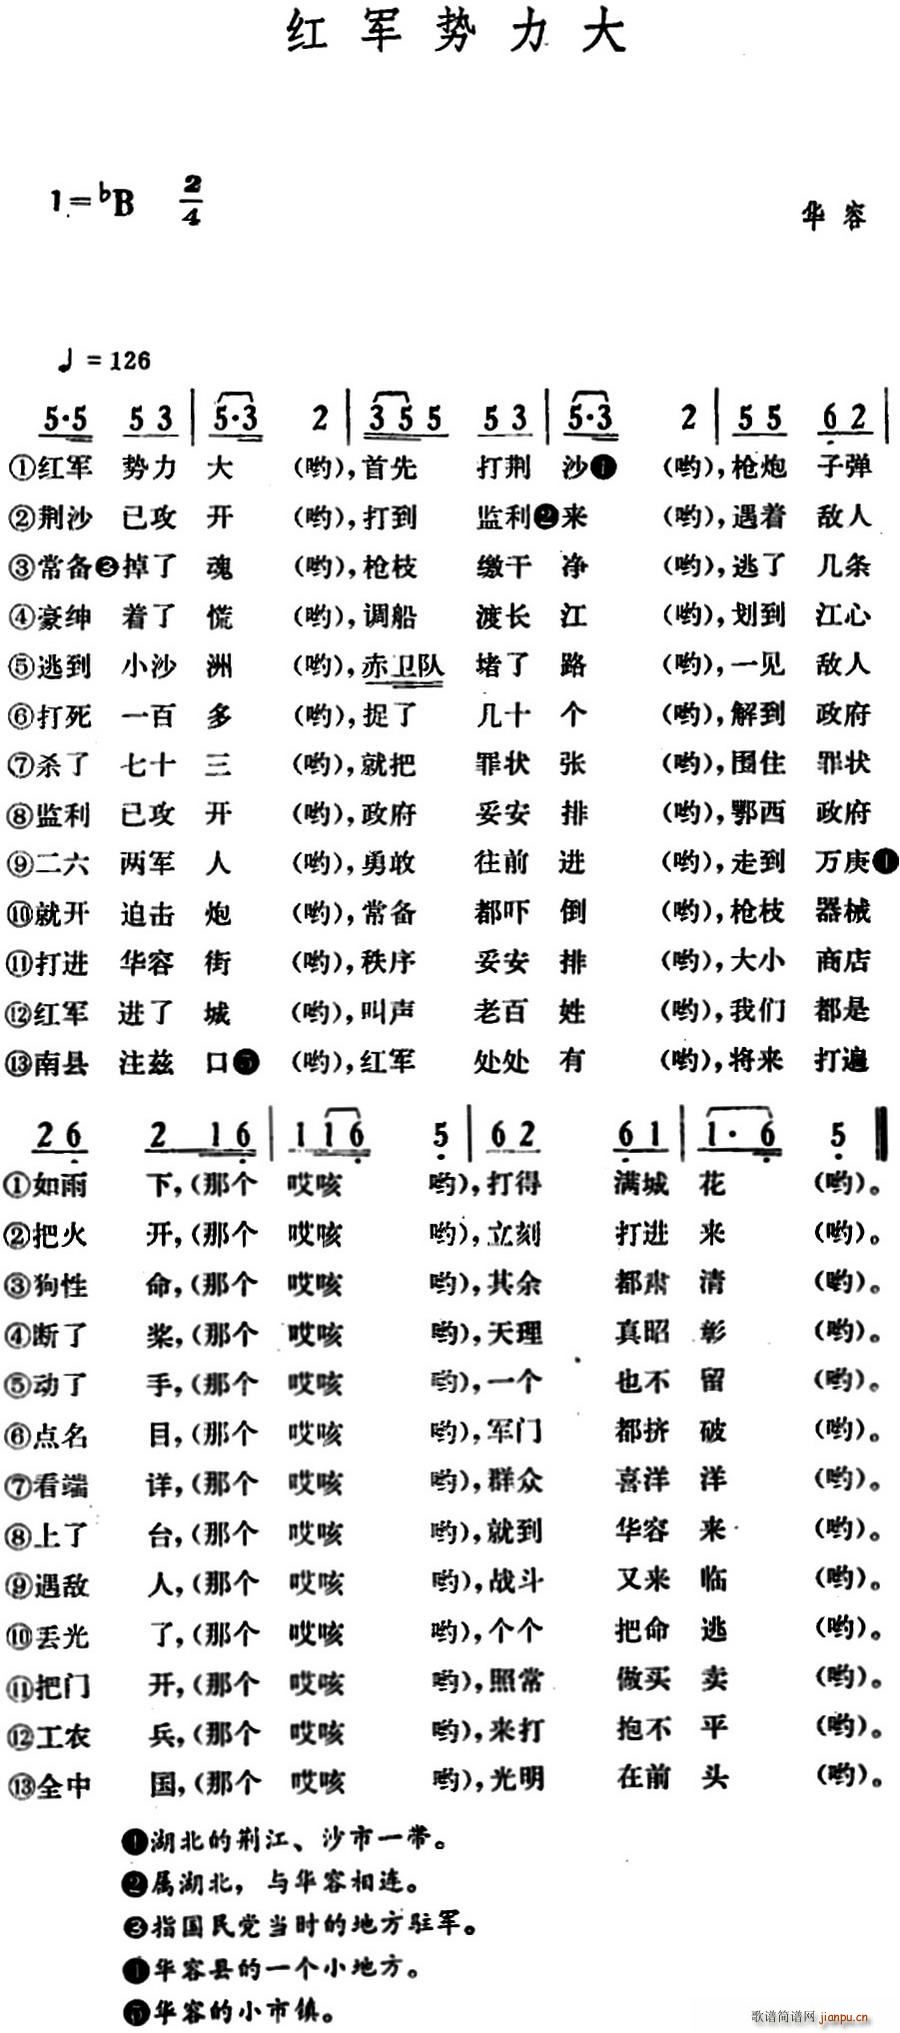 红军势力大
1=♭B 2/4
华容
♩=126
5·5 5 3 | 5·3 2 | 3 5 5 5 3 | 5·3 2 | 5 5 6 2 |
①红军 势力 大 (哟),首先 打荆 沙❶ (哟),枪炮 子弹
②荆沙 已攻 开 (哟),打到 监利❷来 (哟),遇着 敌人
③常备❸掉了 魂 (哟),枪枝 缴干 净 (哟),逃了 几条
④豪绅 着了 慌 (哟),调船 渡长 江 (哟),划到 江心
⑤逃到 小沙 洲 (哟),赤卫队 堵了 路 (哟),一见 敌人
⑥打死 一百 多 (哟),捉了 几十 个 (哟),解到 政府
⑦杀了 七十 三 (哟),就把 罪状 张 (哟),围住 罪状
⑧监利 已攻 开 (哟),政府 妥安 排 (哟),鄂西 政府
⑨二六 两军 人 (哟),勇敢 往前 进 (哟),走到 万庚❶
⑩就开 迫击 炮 (哟),常备 都吓 倒 (哟),枪枝 器械
⑪打进 华容 街 (哟),秩序 妥安 排 (哟),大小 商店
⑫红军 进了 城 (哟),叫声 老百 姓 (哟),我们 都是
⑬南县 注兹 口❺ (哟),红军 处处 有 (哟),将来 打遍
2 6 2 1 6 | 1 1 6 5 | 6 2 6 1 | 1· 6 5 ‖
①如雨 下,(那个 哎咳 哟),打得 满城 花 (哟)。
②把火 开,(那个 哎咳 哟),立刻 打进 来 (哟)。
③狗性 命,(那个 哎咳 哟),其余 都肃 清 (哟)。
④断了 桨,(那个 哎咳 哟),天理 真昭 彰 (哟)。
⑤动了 手,(那个 哎咳 哟),一个 也不 留 (哟)。
⑥点名 目,(那个 哎咳 哟),军门 都挤 破 (哟)。
⑦看端 详,(那个 哎咳 哟),群众 喜洋 洋 (哟)。
⑧上了 台,(那个 哎咳 哟),就到 华容 来 (哟)。
⑨遇敌 人,(那个 哎咳 哟),战斗 又来 临 (哟)。
⑩丢光 了,(那个 哎咳 哟),个个 把命 逃 (哟)。
⑪把门 开,(那个 哎咳 哟),照常 做买 卖 (哟)。
⑫工农 兵,(那个 哎咳 哟),来打 抱不 平 (哟)。
⑬全中 国,(那个 哎咳 哟),光明 在前 头 (哟)。
❶湖北的荆江、沙市一带。
❷属湖北，与华容相连。
❸指国民党当时的地方驻军。
❶华容县的一个小地方。
❺华容的小市镇。
歌谱简谱网
jianpu.cn